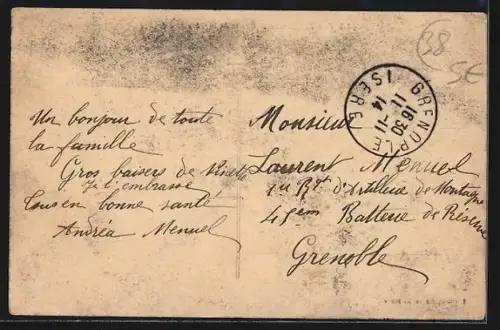 38
5€
GRENOBLE
ISERE
16 30
11 -11
14
Un bonjour de toute
la famille
Gros baisers de
Je t'embrasse
Tous en bonne santé
Andréa Menuel
Monsieur
Laurent Menuel
d'Artillerie de Montagne
45em Batterie de Réserve
Grenoble